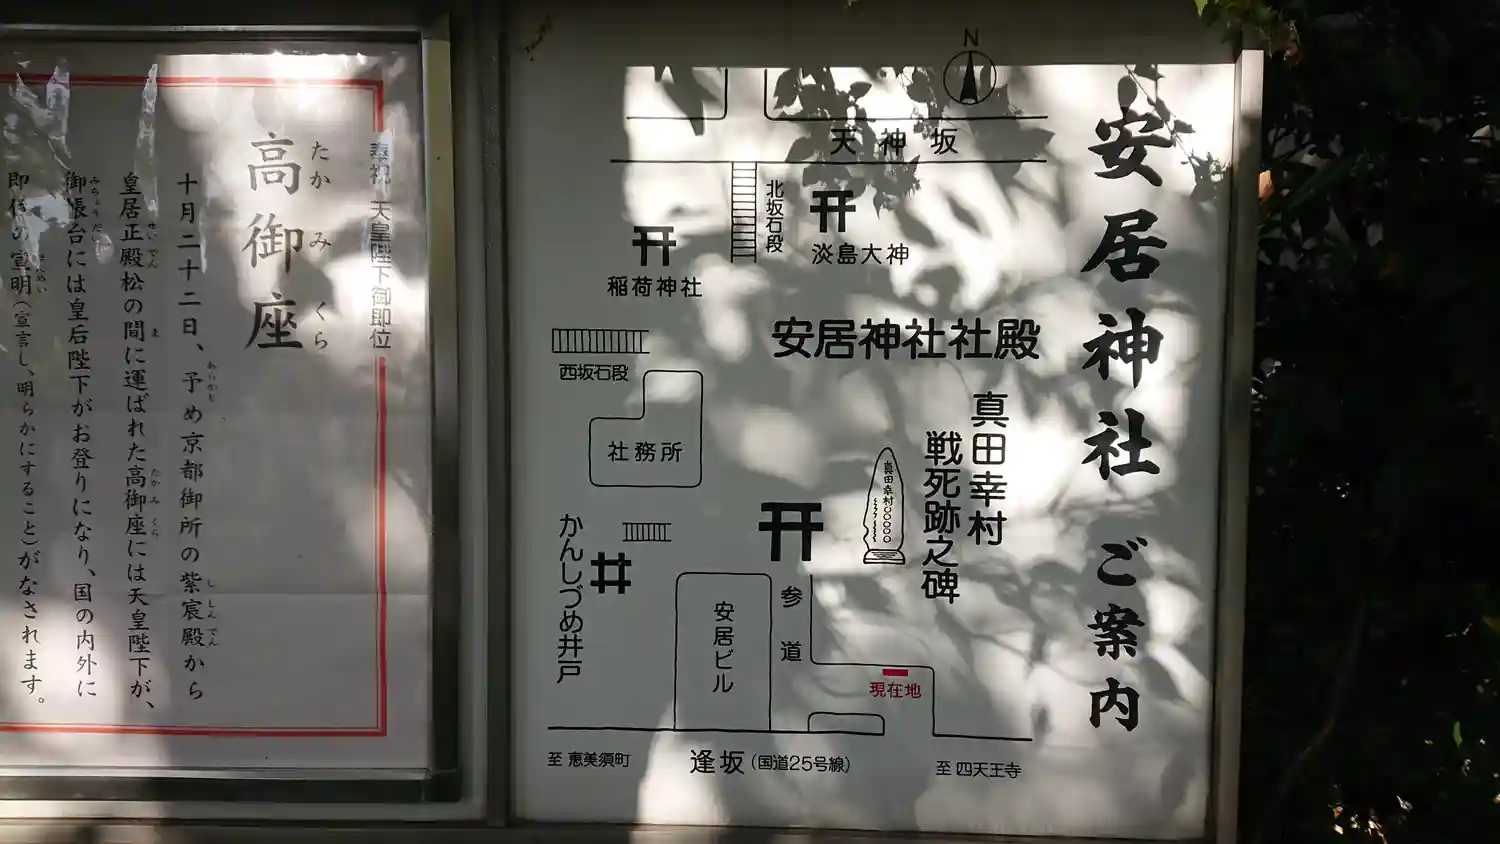 安居神社 ご案内
N
天神坂
北坂石段
淡島大神
稲荷神社
安居神社社殿
西坂石段
社務所
真田幸村
戦死跡之碑
真田幸村
かんしづめ井戸
安居ビル
参道
現在地
至 恵美須町
逢坂(国道25号線)
至 四天王寺
奉祝 天皇陛下御即位
たか み くら
高御座
十月二十二日、予め京都御所の紫宸殿から
皇居正殿松の間に運ばれた高御座には天皇陛下が、
御帳台には皇后陛下がお登りになり、国の内外に
即位の宣明(宣言し、明らかにすること)がなされます。